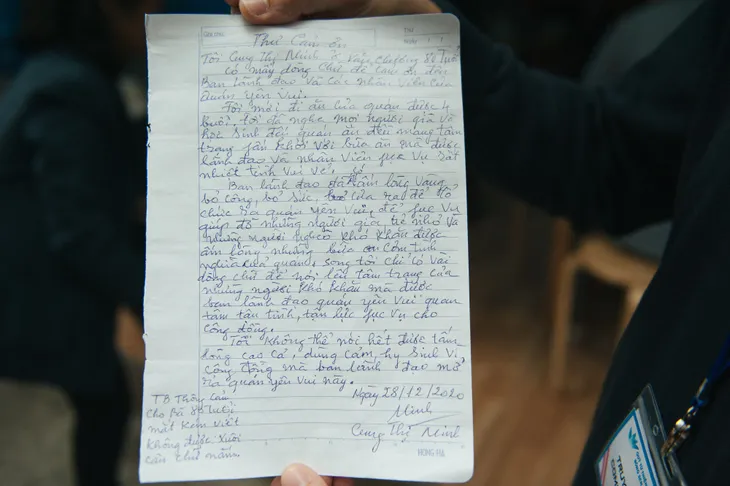 Thư cảm ơn
Tôi Cung Thị Minh ở Văn Chương 80 Tuổi
có mấy dòng chữ để cảm ơn đến
Ban lãnh đạo và các nhân viên của
quán yên vui.
Tôi mới đi ăn của quán được 4
buổi, tôi đã nghe mọi người già và
học sinh đến quán ăn đều mang tâm
trạng fấn khởi với bữa ăn mà được
lãnh đạo và nhân viên fục vụ rất
nhiệt tình vui vẻ.
Ban lãnh đạo đã có tấm lòng vàng
bỏ công, bỏ sức, bỏ của ra để tổ
chức ra quán yên vui, để fục vụ
giúp đỡ những người già trẻ nhỏ và
những người nghèo khó khăn được
ấm lòng những bữa cơm tình
nghĩa của quán, song tôi chỉ có vài
dòng chữ để nói lên tâm trạng của
những người khó khăn mà được
ban lãnh đạo quán yên vui quan
tâm tận tình, tận lực fục vụ cho
công đồng.
Tôi không thể nói hết được tấm
lòng cao cả, dũng cảm, hy sinh vì
công đồng mà ban lãnh đạo mở
ra quán yên vui này.
Ngày 28/12/2020
Minh
Cung Thị Minh
Thông cảm
cho Bà 80 tuổi
mắt kém viết
không được xuôi
cân chữ nằm.
HONG HA